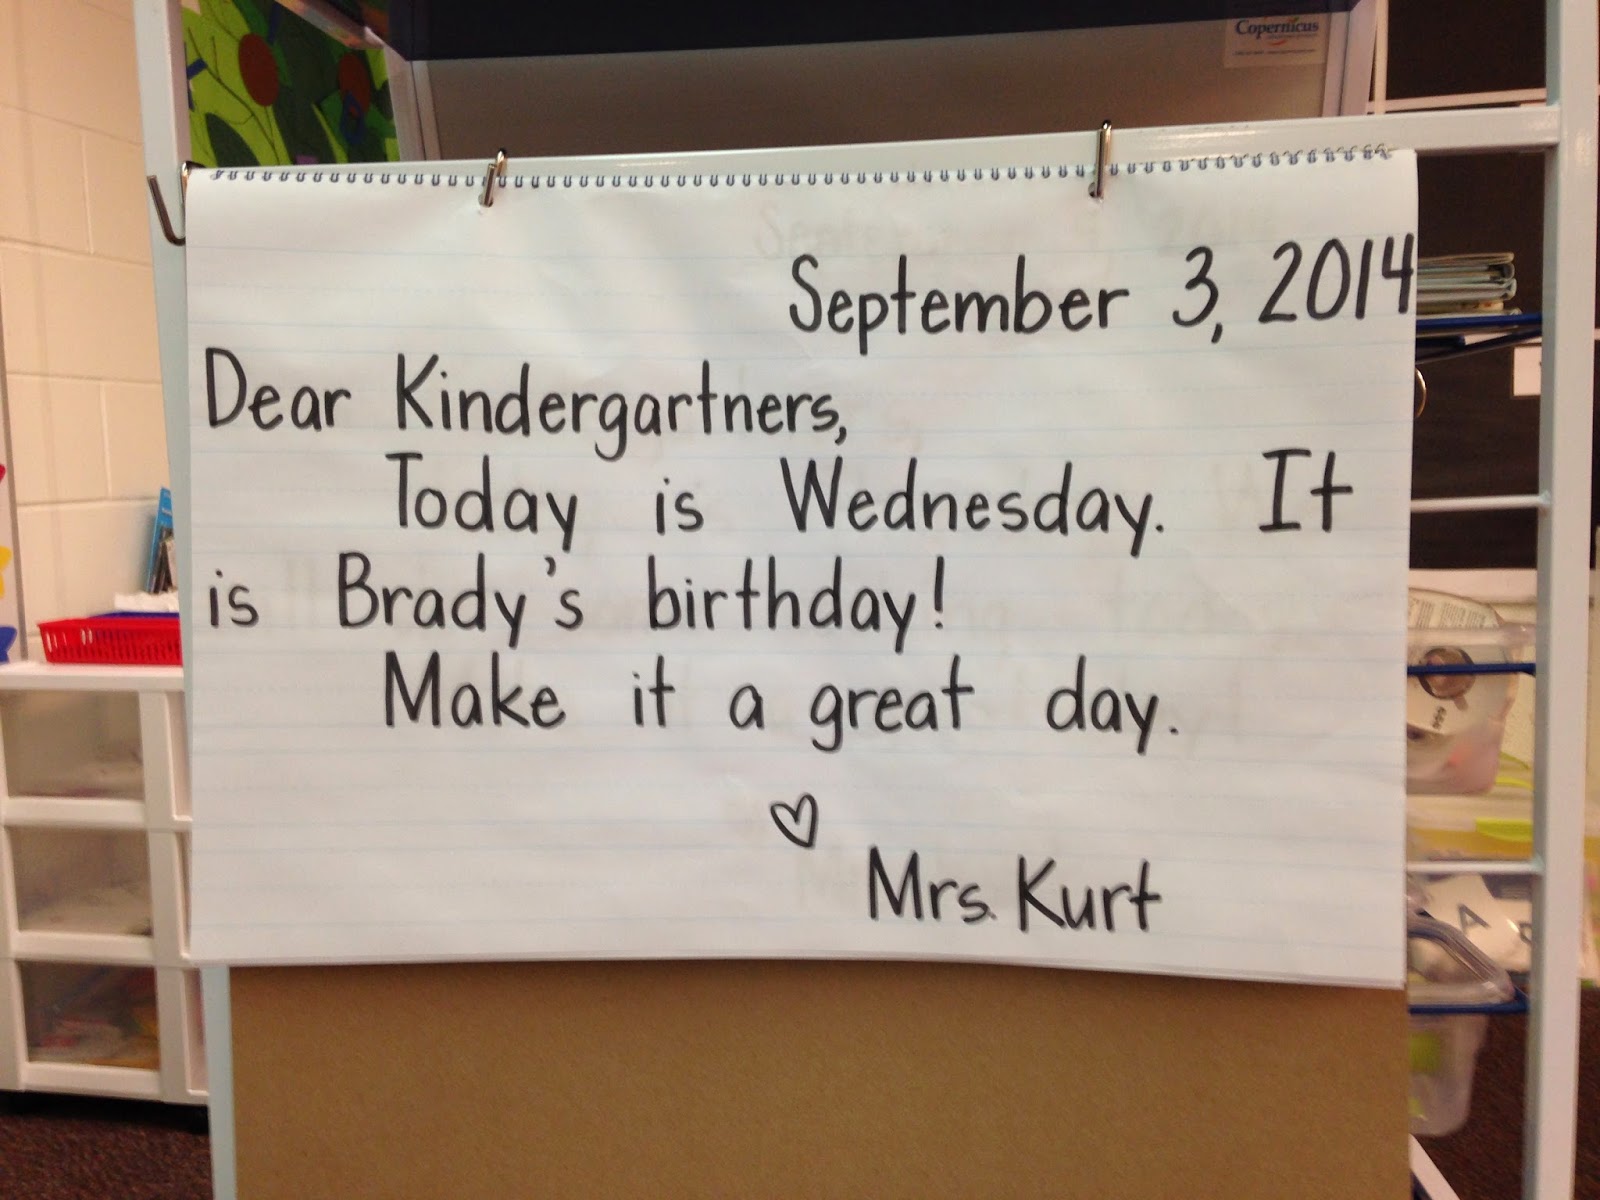 Copernicus
September 3, 2014
Dear Kindergartners,
Today is Wednesday. It
is Brady's birthday!
Make it a great day.
♡
Mrs. Kurt
A